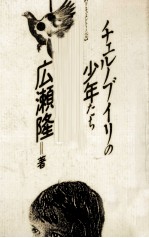 チェルノブイリの
少年たち
広瀬隆＝著